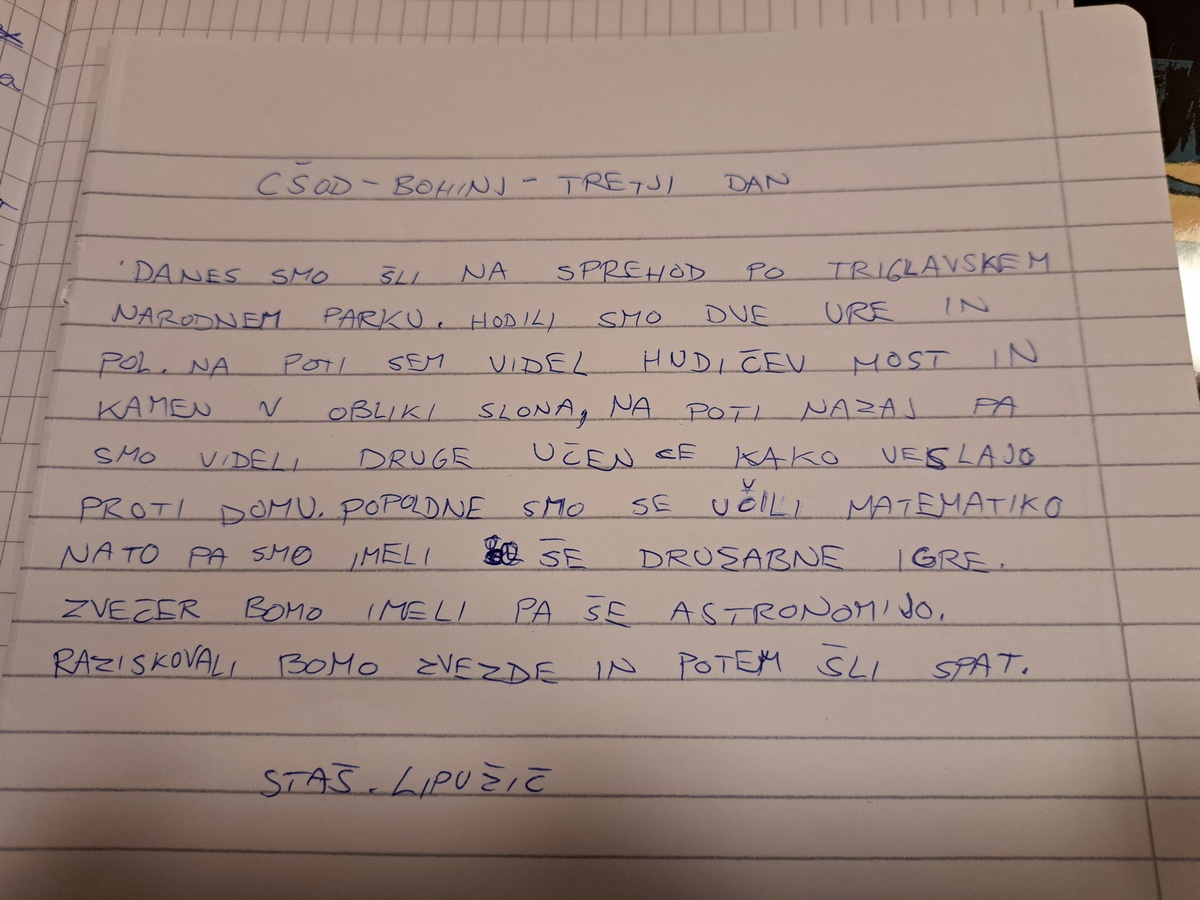 CŠOD - BOHINJ - TRETJI DAN
DANES SMO ŠLI NA SPREHOD PO TRIGLAVSKEM
NARODNEM PARKU. HODILI SMO DVE URE IN
POL. NA POTI SEM VIDEL HUDIČEV MOST IN
KAMEN V OBLIKI SLONA, NA POTI NAZAJ PA
SMO VIDELI DRUGE UČENCE KAKO VESLAJO
PROTI DOMU. POPOLDNE SMO SE UČILI MATEMATIKO
NATO PA SMO IMELI ŠE DRUŽABNE IGRE.
ZVEČER BOMO IMELI PA ŠE ASTRONOMIJO.
RAZISKOVALI BOMO ZVEZDE IN POTEM ŠLI SPAT.
STAŠ. LIPUŽIČ